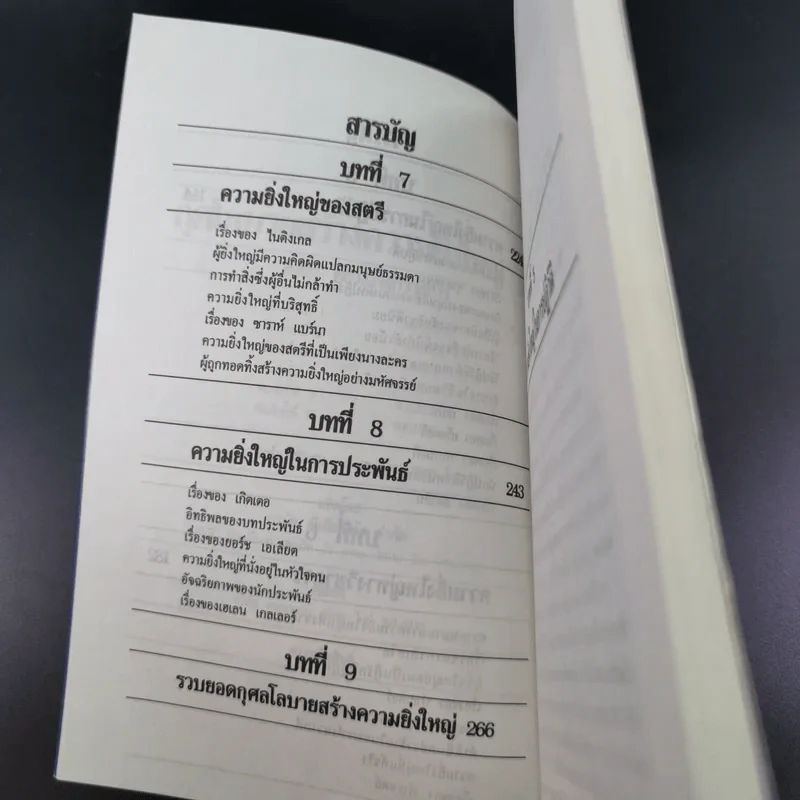 สารบัญ
บทที่ 7
ความยิ่งใหญ่ของสตรี
เรื่องของ ไนติงเกล
ผู้ยิ่งใหญ่มีความคิดผิดแปลกมนุษย์ธรรมดา
การทำสิ่งซึ่งผู้อื่นไม่กล้าทำ
ความยิ่งใหญ่ที่บริสุทธิ์
เรื่องของ ซาราห์ แบร์นา
ความยิ่งใหญ่ของสตรีที่เป็นเพียงนางละคร
ผู้ถูกทอดทิ้งสร้างความยิ่งใหญ่อย่างมหัศจรรย์
บทที่ 8
ความยิ่งใหญ่ในการประพันธ์ 243
เรื่องของ เกิตเตอ
อิทธิพลของบทประพันธ์
เรื่องของยอร์ช เอเลียต
ความยิ่งใหญ่ที่นั่งอยู่ในหัวใจคน
อัจฉริยภาพของนักประพันธ์
เรื่องของเฮเลน เกลเลอร์
บทที่ 9
รวบยอดกุศลโลบายสร้างความยิ่งใหญ่ 266